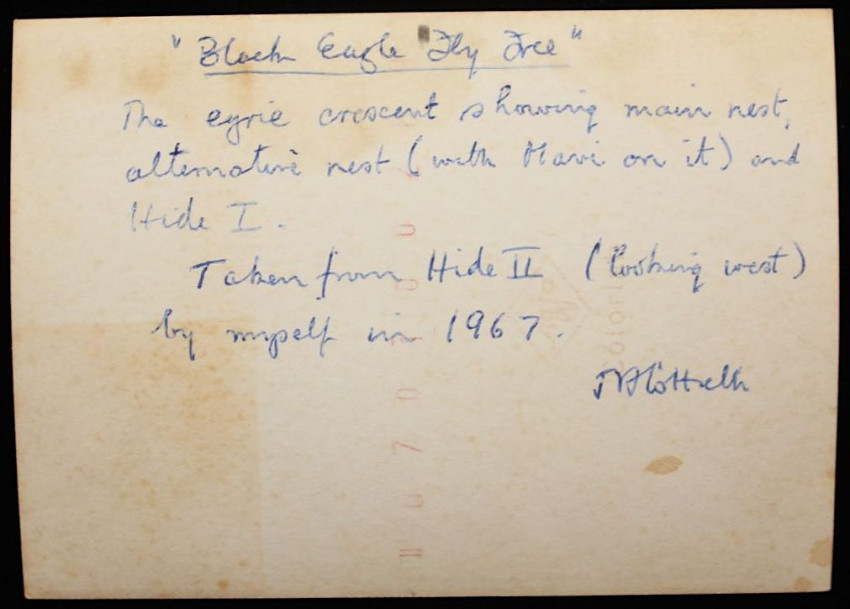 "Black Eagle Fly Free"
The eyrie crescent showing main nest,
alternative nest (with Mavi on it) and
Hide I.
Taken from Hide II (looking west)
by myself in 1967.
Cottrell